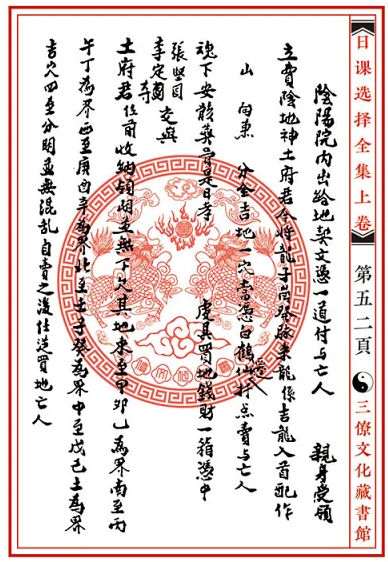 日课选择全集上卷
第五二頁
三僚文化藏書館
陰陽院内出給地契文憑一道付与亡人 親身受領
立賣陰地神土府君今將龍子崗發脉来龍係吉龍入首配作
山 向兼 分金吉地一穴當憑白鶴仙打点賣与亡人
魂下安 是日等 虔具買地錢財一箱憑中
張堅固
李定國
等 交與
土府君位前收納領 並無下欠其地東至甲卯乙為界南至丙
午丁為界西至庚酉辛為界北至壬子癸為界中至戊己土為界
吉穴四至分明並無混乱自賣之後任從買地亡人